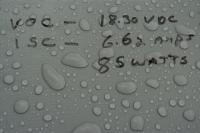 VOC - 18.30 VDC
ISC - 6.62 AMPS
85 WATTS